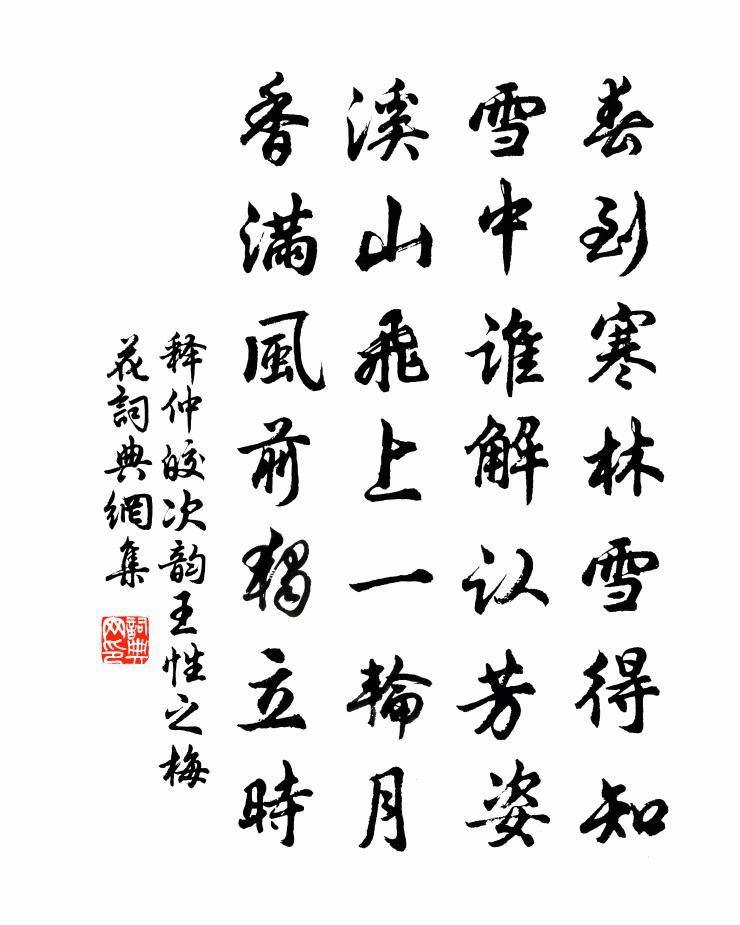 春到寒林雪得知
雪中谁解认芳姿
溪山飛上一輪月
香滿風前獨立時
释仲皎次韵王性之梅
花詞典網集
詞典网印